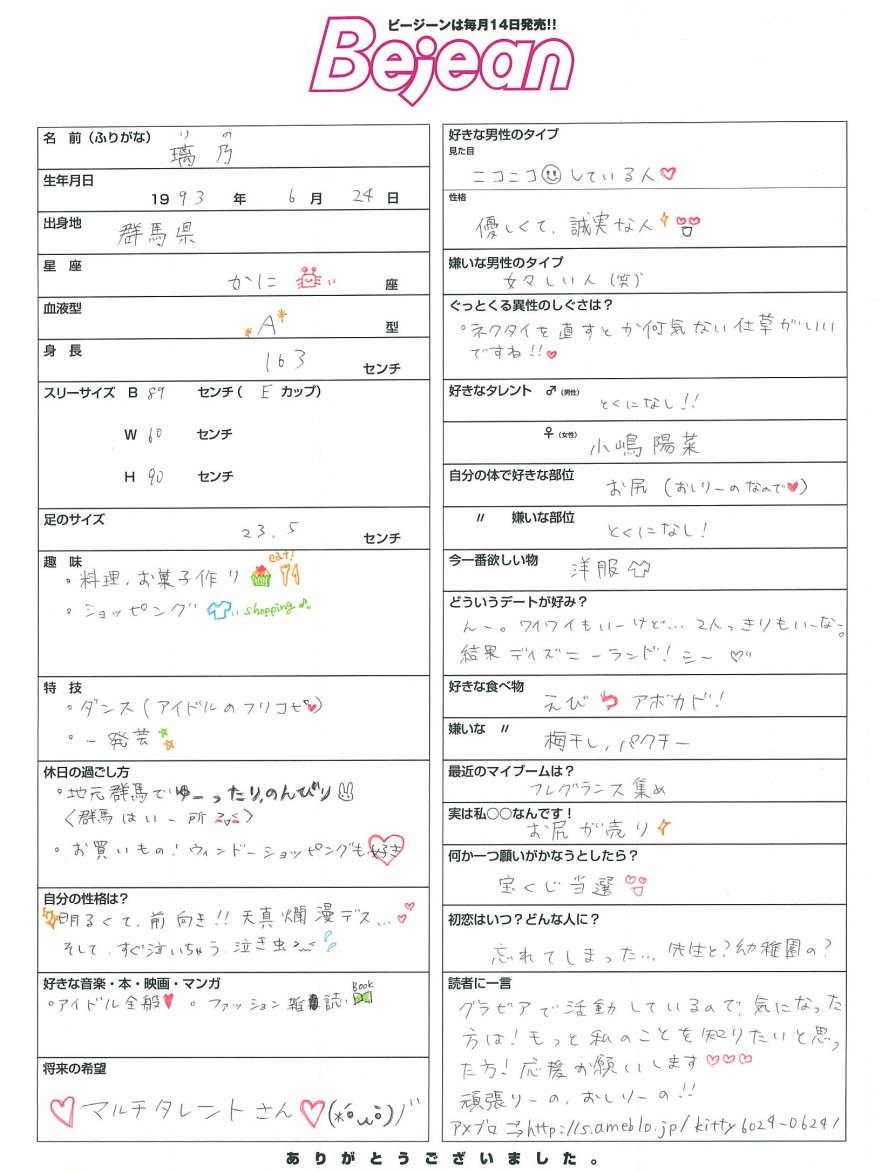 ビージーンは毎月14日発売!!
Bejean
名 前(ふりがな) りの
璃乃
生年月日
1993年 6月 24日
出身地 群馬県
星 座 かに 座
血液型 A 型
身 長 163 センチ
スリーサイズ B 89 センチ( E カップ)
W 60 センチ
H 90 センチ
足のサイズ 23.5 センチ
趣 味
eat!
。料理、お菓子作り
。ショッピング shopping♪
特 技
。ダンス(アイドルのフリコピ♥)
。一発芸
休日の過ごし方
。地元群馬でゆーったり、のんびり
〈群馬はいー所〉
。お買いもの!ウィンドーショッピングも好き
自分の性格は?
明るくて、前向き!!天真爛漫デス…
そして、すぐ泣いちゃう泣き虫
好きな音楽・本・映画・マンガ
Book
。アイドル全般♥ 。ファッション雑誌
将来の希望
♡マルチタレントさん♡(*´ω`)ノ
好きな男性のタイプ
見た目
ニコニコ☺している人♥
性格
優しくて、誠実な人
嫌いな男性のタイプ
女々しい人(笑)
ぐっとくる異性のしぐさは?
。ネクタイを直すとか何気ない仕草がいい
ですね!!♥
好きなタレント ♂(男性) とくになし!!
♀(女性) 小嶋陽菜
自分の体で好きな部位 お尻(おしりーのなので♥)
〃 嫌いな部位 とくになし!
今一番欲しい物 洋服
どういうデートが好み?
んー。ワイワイもいーけど…2人っきりもいーなー。
結果ディズニーランド!シー♡
好きな食べ物 えび アボカド!
嫌いな 〃 梅干し、パクチー
最近のマイブームは?
フレグランス集め
実は私○○なんです!
お尻が売り
何か一つ願いがかなうとしたら?
宝くじ当選
初恋はいつ?どんな人に?
忘れてしまった…先生と?幼稚園の?
読者に一言
グラビアで活動しているので、気になった
方は!もっと私のことを知りたいと思っ
た方!応援お願いします♡♡♡
頑張りーの、おしりーの!!
アメブロ⇒http://s.ameblo.jp/kitty6024-0624/
ありがとうございました。